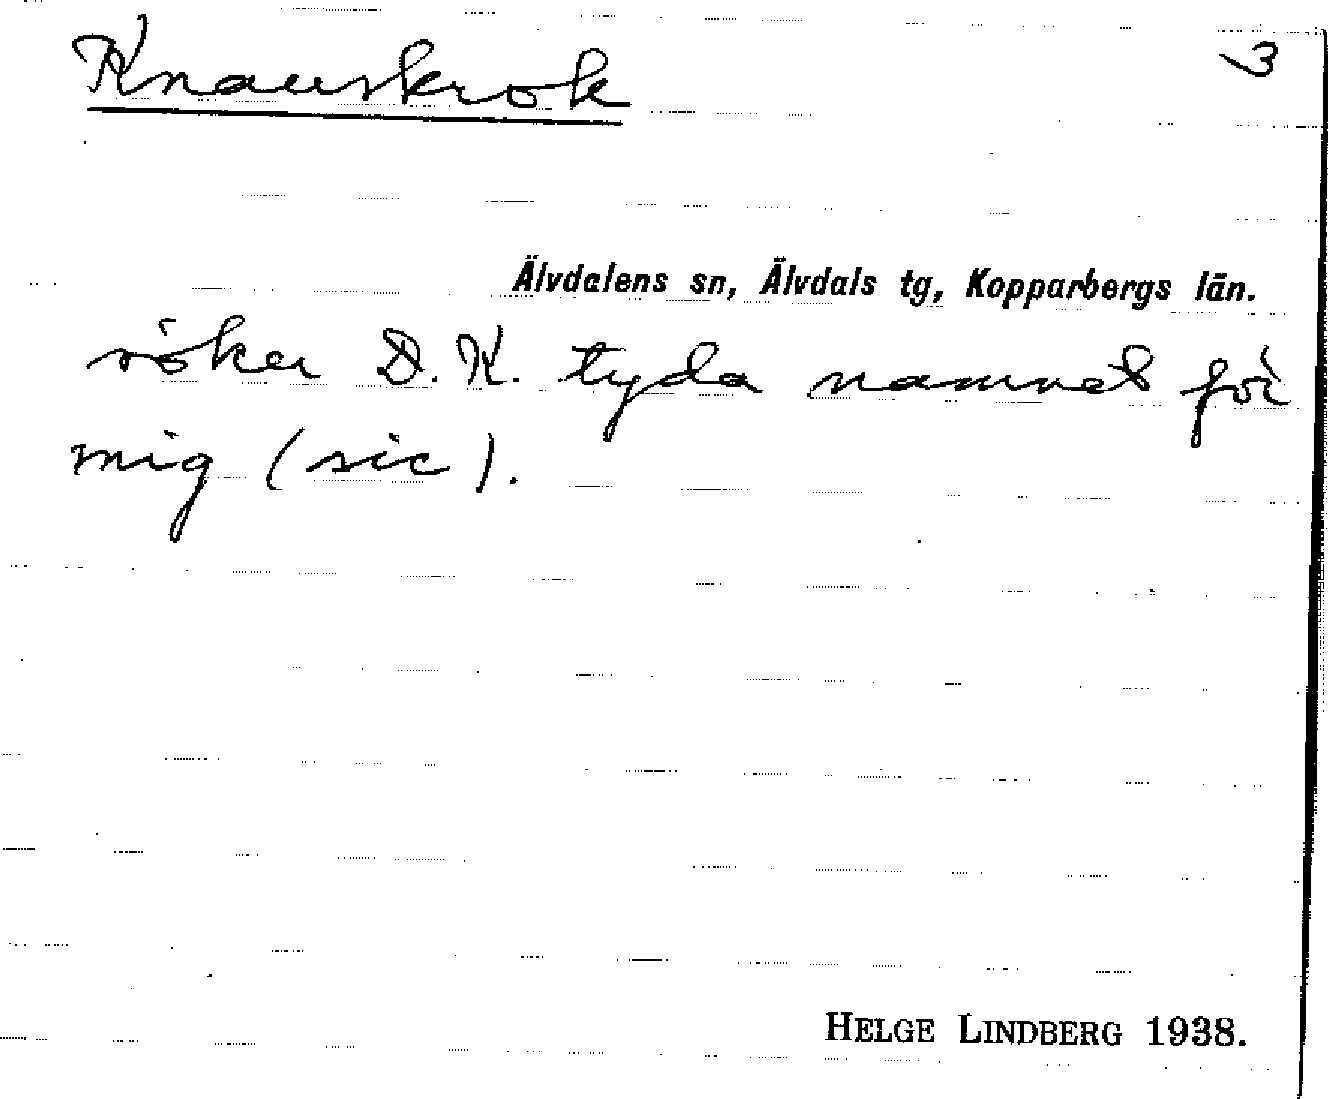 Knauskrok 3
Älvdalens sn, Älvdals tg, Kopparbergs län.
söker D. K. tyda namnet för
mig (sic).
HELGE LINDBERG 1938.